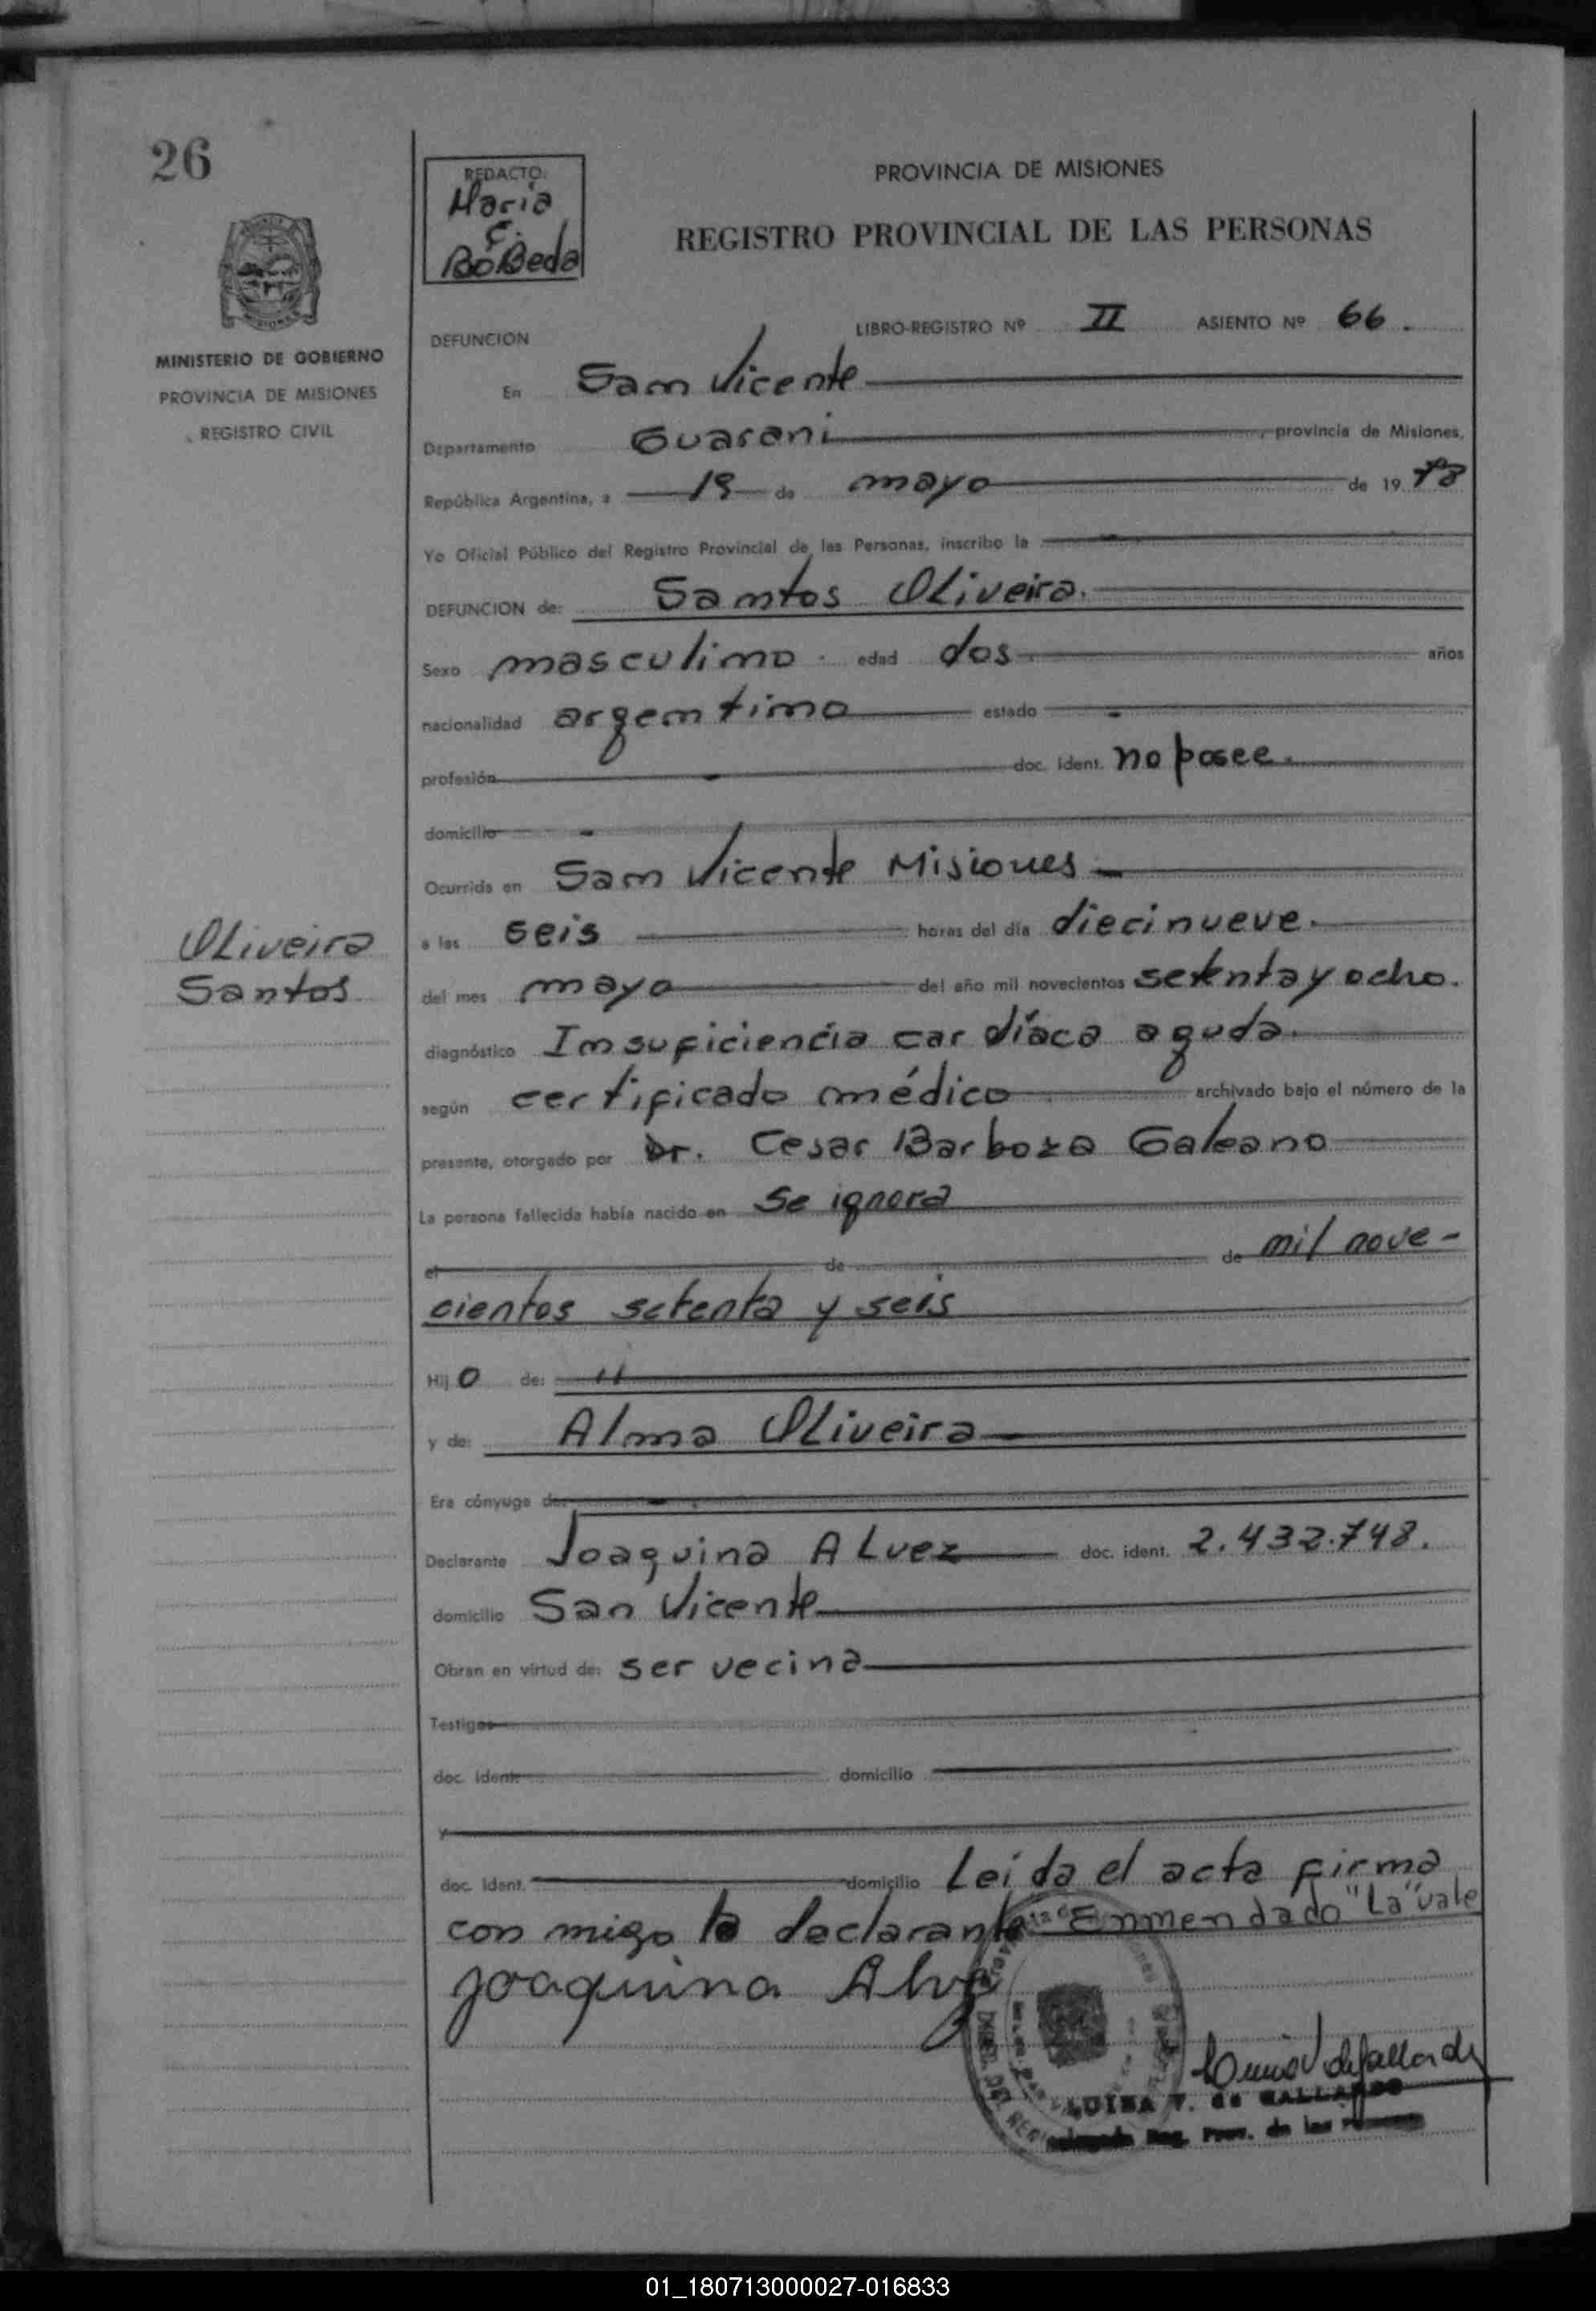 26
REDACTO:
Maria
C.
BoBeda
PROVINCIA DE MISIONES
REGISTRO PROVINCIAL DE LAS PERSONAS
MINISTERIO DE GOBIERNO
PROVINCIA DE MISIONES
REGISTRO CIVIL
DEFUNCION
LIBRO-REGISTRO Nº II ASIENTO Nº 66.
En Sam Vicente
Departamento Guarani, provincia de Misiones,
República Argentina, a 19 de mayo de 1978
Yo Oficial Público del Registro Provincial de las Personas, inscribo la
DEFUNCION de: Samtos Oliveira.
Sexo masculimo. edad dos años
nacionalidad argemtimo estado -
profesión - doc. ident. no posee.
domicilio -
Ocurrida en Sam Vicente Misiones
Oliveira
Santos
a las seis horas del día diecinueve.
del mes mayo del año mil novecientos setenta y ocho.
diagnóstico Imsuficiencia cardíaca aguda.
según certificado médico archivado bajo el número de la
presente, otorgado por Dr. Cesar Barboza Galeano
La persona fallecida había nacido en se ignora
el de de mil nove-
cientos setenta y seis
Hijo de: "
y de: Alma Oliveira
Era cónyuge de: -
Declarante Joaquina Alvez doc. ident. 2.432.748.
domicilio San Vicente
Obran en virtud de: ser vecina
Testigos
doc. ident. domicilio
y
doc. ident. domicilio Leida el acta firma
con migo la declarante Enmendado "La" vale
Joaquina Alvez
LUISA V. de GALLARDO
Delegada Reg. Prov. de las Personas
01_180713000027-016833